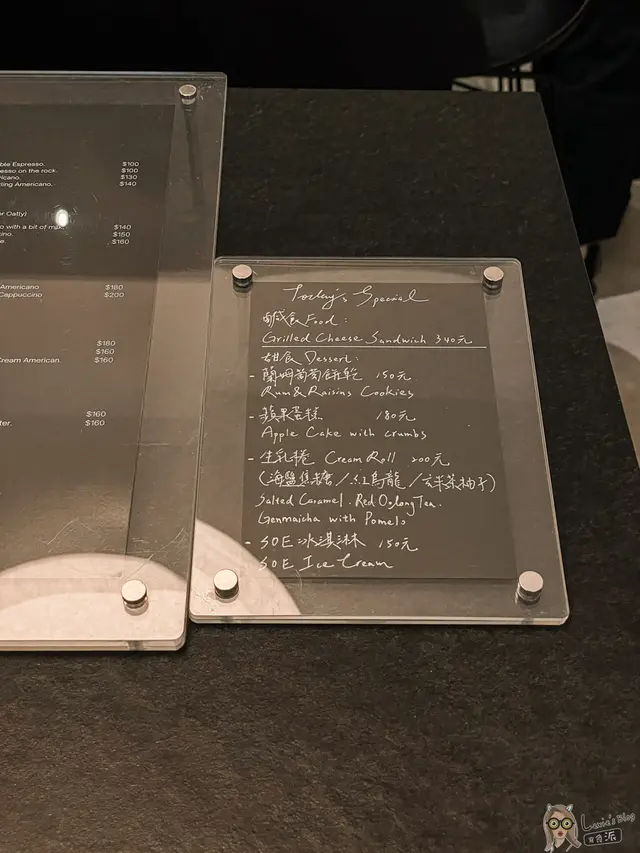 ble Espresso. $100
esso on the rock. $100
ricano. $130
ling Americano. $140
r Oatly)
o with a bit of milk. $140
ino. $150
e. $160
Americano $180
Cappuccino $200
$180
$160
Cream American. $160
$160
ter. $160
Today's Special
鹹食 Food :
Grilled Cheese Sandwich 340元
甜食 Dessert :
- 蘭姆葡萄餅乾 150元
Rum & Raisins Cookies
- 蘋果蛋糕 180元
Apple Cake with crumbs
- 生乳捲 Cream Roll 200元
(海鹽焦糖 / 紅烏龍 / 玄米茶柚子)
Salted Caramel . Red Oolong Tea .
Genmaicha with Pomelo
- SOE 冰淇淋 150元
SOE Ice Cream
Lexie's Blog